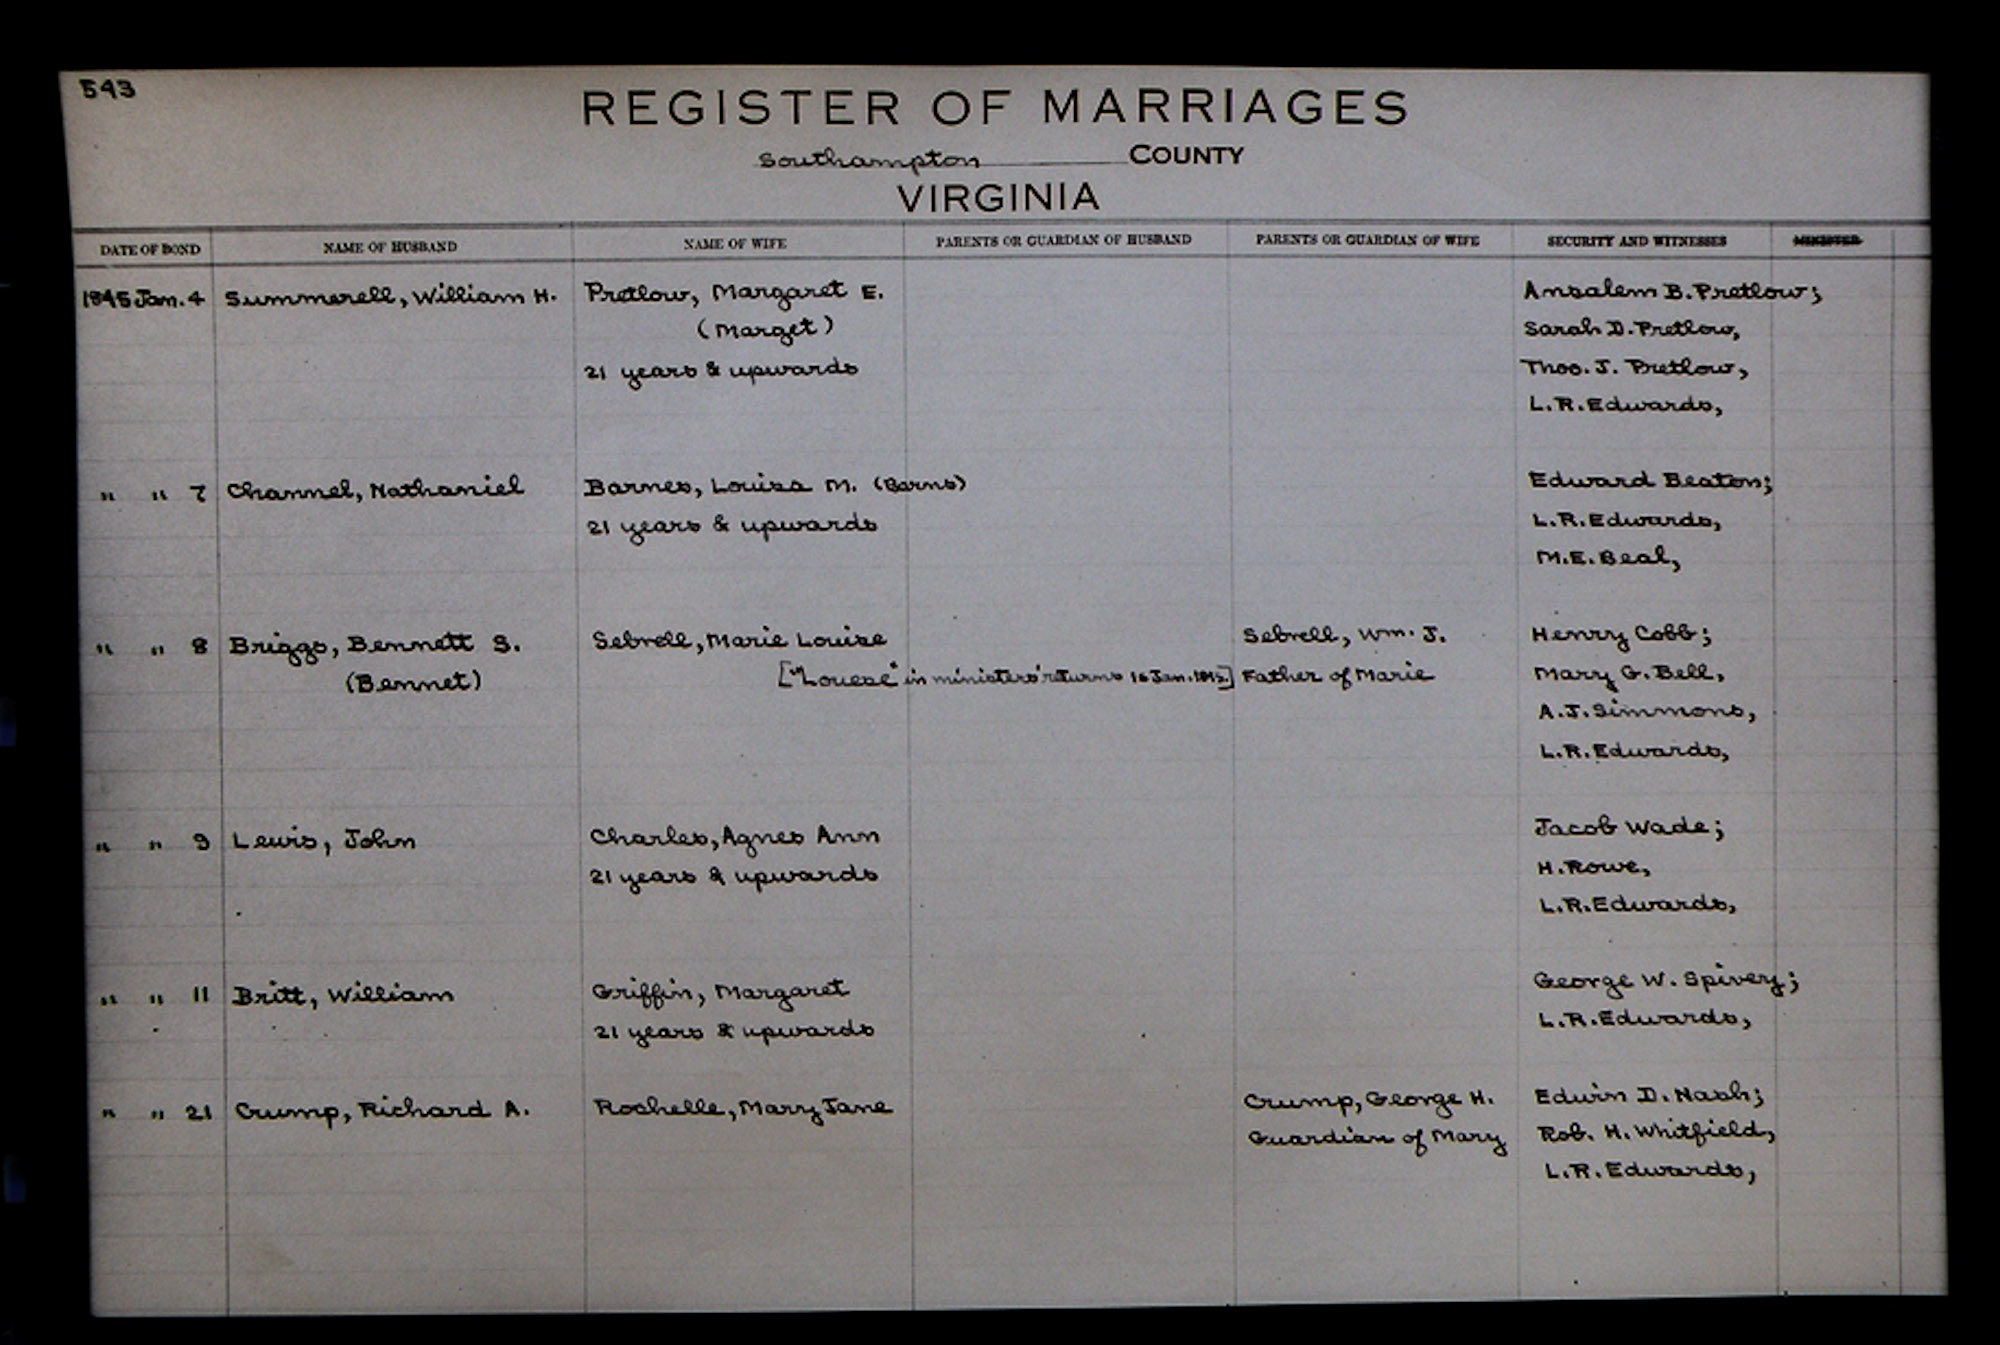 543
REGISTER OF MARRIAGES
Southampton COUNTY
VIRGINIA
DATE OF BOND NAME OF HUSBAND NAME OF WIFE PARENTS OR GUARDIAN OF HUSBAND PARENTS OR GUARDIAN OF WIFE SECURITY AND WITNESSES MINISTER
1845 Jan. 4 Summerell, William H. Pretlow, Margaret E. Ansalem B. Pretlow;
(Marget) Sarah D. Pretlow,
21 years & upwards Thos. J. Pretlow,
L.R. Edwards,
" " 7 Channel, Nathaniel Barnes, Louisa M. (Barns) Edward Beaton;
21 years & upwards L.R. Edwards,
M.E. Beal,
" " 8 Briggs, Bennett S. Sebrell, Marie Louise Sebrell, Wm. J. Henry Cobb;
(Bennet) ["Louese" in ministers' returns 16 Jan. 1845.] Father of Marie Mary G. Bell,
A.J. Simmons,
L.R. Edwards,
" " 9 Lewis, John Charles, Agnes Ann Jacob Wade;
21 years & upwards H. Rowe,
L.R. Edwards,
" " 11 Britt, William Griffin, Margaret George W. Spivey;
21 years & upwards L.R. Edwards,
" " 21 Crump, Richard A. Rochelle, Mary Jane Crump, George H. Edwin D. Nash;
Guardian of Mary Rob. H. Whitfield,
L.R. Edwards,